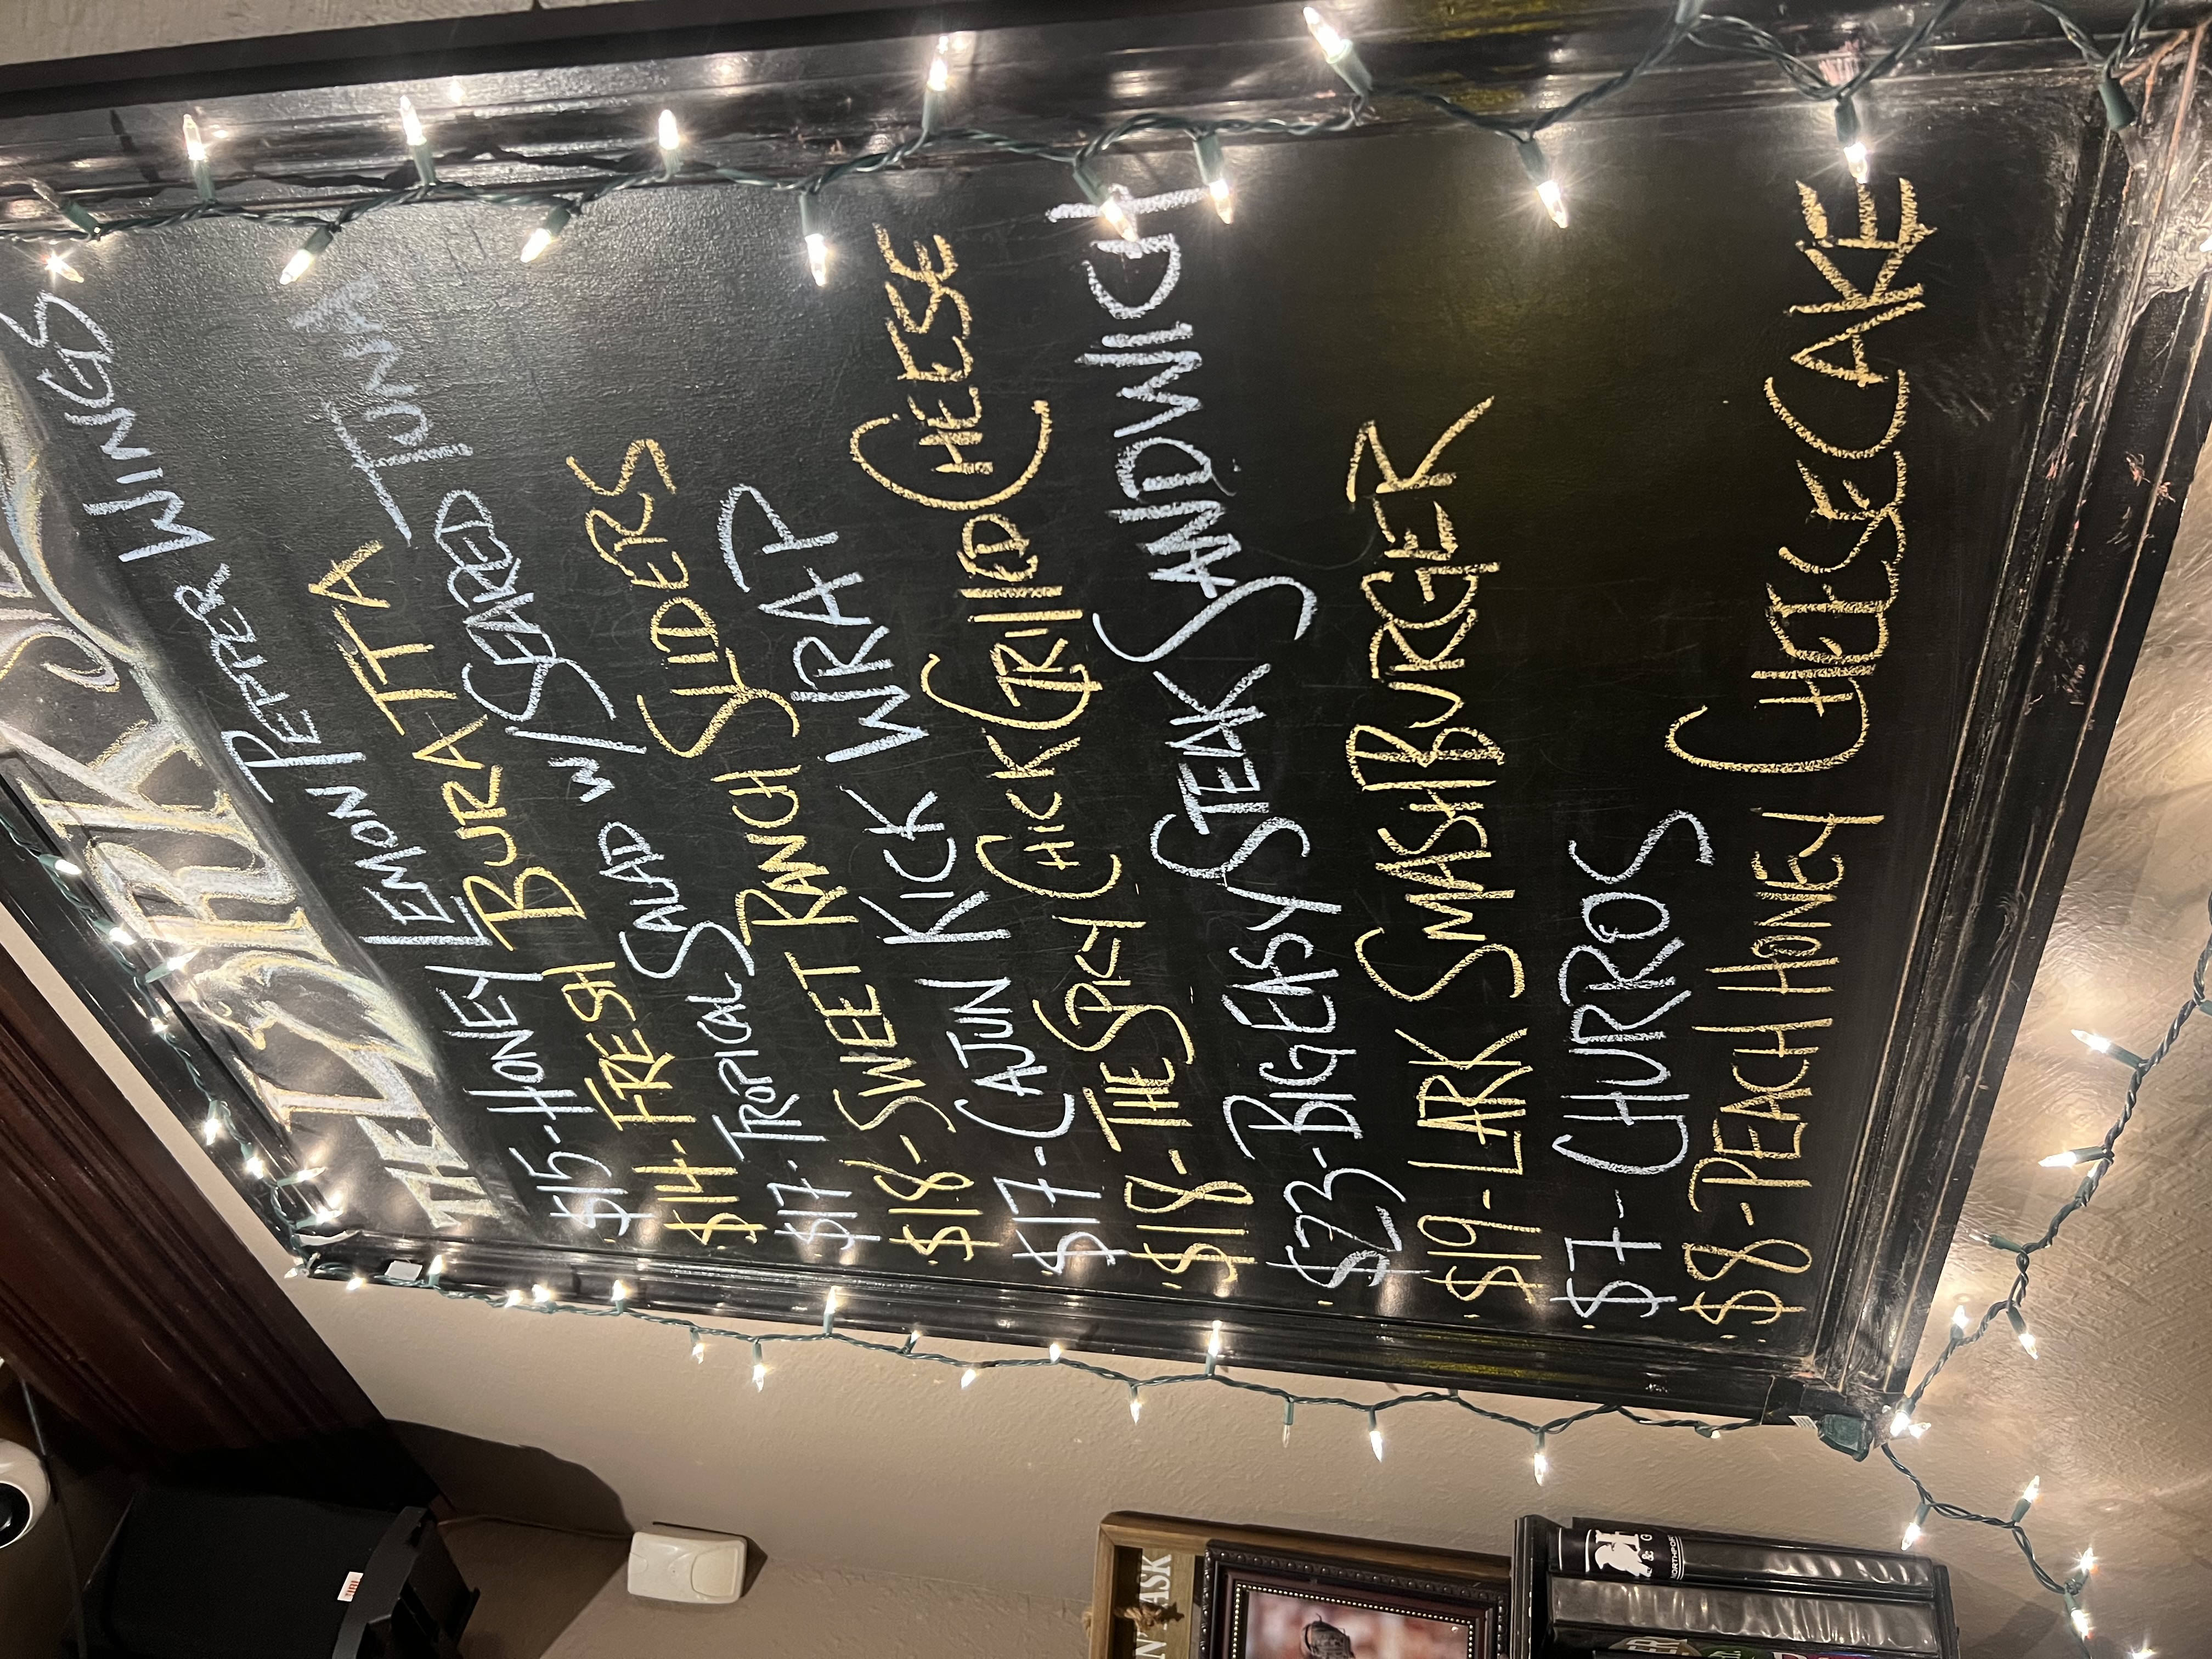 THE LARK
$15-HONEY LEMON PEPPER WINGS
$14-FRESH BURATTA
$17-TROPICAL SALAD W/SEARED TUNA
$18-SWEET RANCH SLIDERS
$17-CAJUN KICK WRAP
$18-THE SPICY CHICK GRILLED CHEESE
$23-BIG EASY STEAK SANDWICH
$19-LARK SMASHBURGER
$7-CHURROS
$8-PEACH HONEY CHEESECAKE
JBL
ASK
H
& G
NORTHPORT